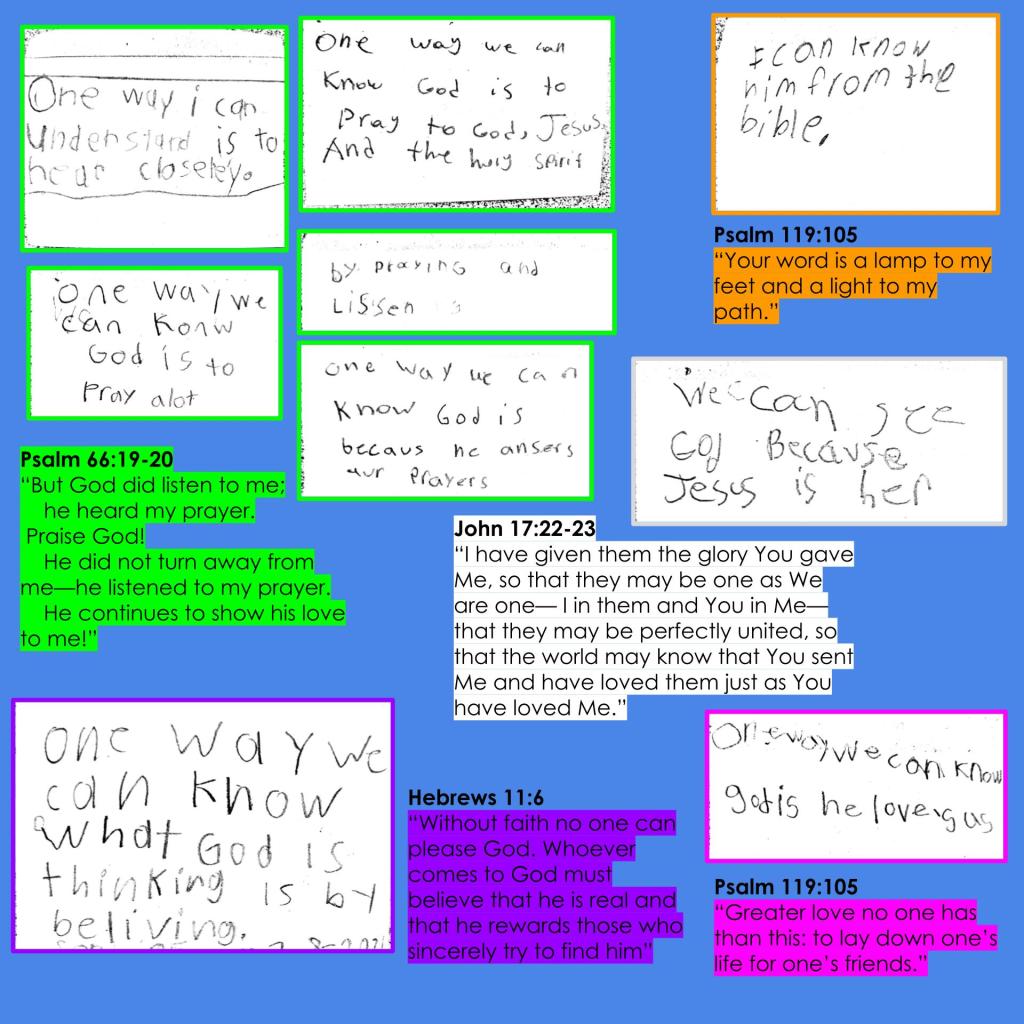 One way i can
understand is to
hear closeley.
One way we can
Know God is to
Pray to God, Jesus,
And the holy spirit
I can know
him from the
bible,
Psalm 119:105
“Your word is a lamp to my
feet and a light to my
path.”
one way we
can Konw
God is to
Pray alot
by praying and
Lissen
one way we can
Know God is
becaus he ansers
our Prayers
We can see
God Because
Jesus is her
Psalm 66:19-20
“But God did listen to me;
he heard my prayer.
Praise God!
He did not turn away from
me—he listened to my prayer.
He continues to show his love
to me!”
John 17:22-23
“I have given them the glory You gave
Me, so that they may be one as We
are one— I in them and You in Me—
that they may be perfectly united, so
that the world may know that You sent
Me and have loved them just as You
have loved Me.”
one way we
can know
what God is
thinking is by
beliving.
Hebrews 11:6
“Without faith no one can
please God. Whoever
comes to God must
believe that he is real and
that he rewards those who
sincerely try to find him”
One way we can know
god is he loves us
Psalm 119:105
“Greater love no one has
than this: to lay down one’s
life for one’s friends.”